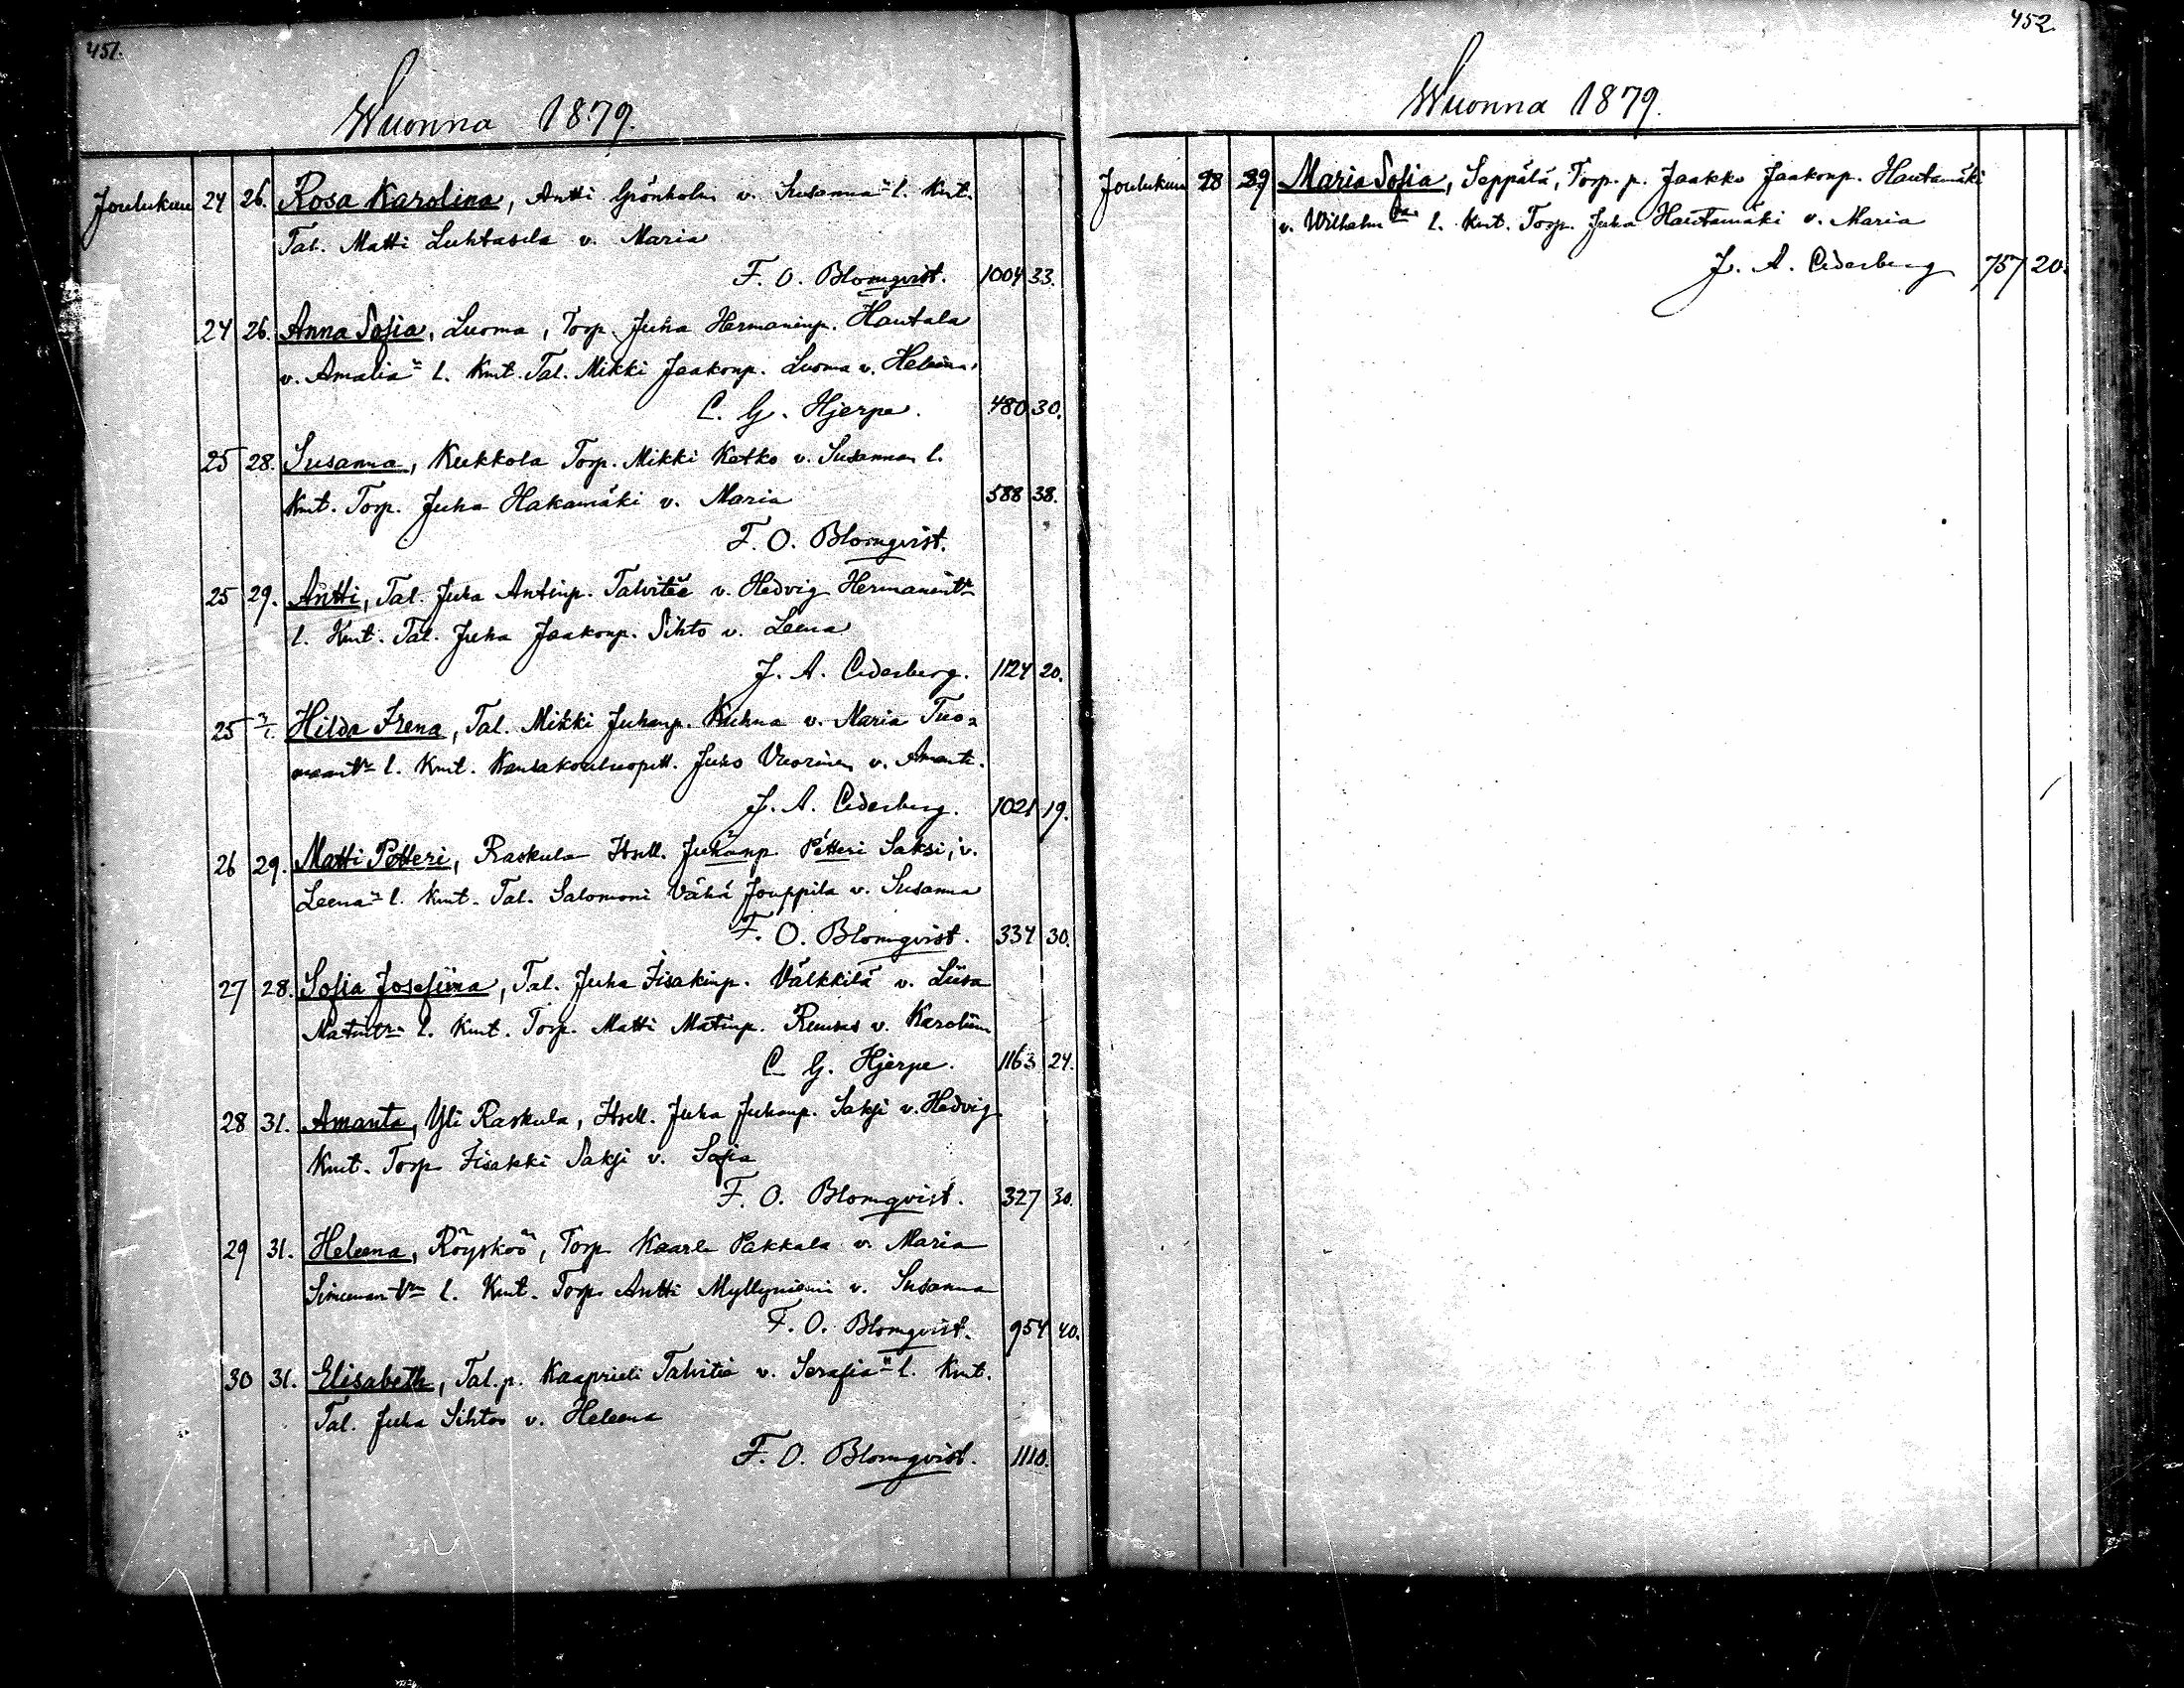 451.
Wuonna 1879.
Joulukuu 24 26. Rosa Karolina, Antti Grönholm v. Susanna l. Kmt.
Tal. Matti Luhtasela v. Maria
F. O. Blomqvist. 1004 33.
24 26. Anna Sofia, Luoma, Torp. Juha Hermaninp. Hautala
v. Amalia l. Kmt. Tal. Mikki Jaakonp. Luoma v. Heleena.
C. G. Hjerpe. 480 30.
25 28. Susanna, Kukkola Torp. Mikki Ketko v. Susanna l.
Kmt. Torp. Juha Hakamäki v. Maria 588 38.
F. O. Blomqvist.
25 29. Antti, Tal. Juha Antinp. Talvitie v. Hedvig Hermanintr
l. Kmt. Tal. Juha Jaakonp. Sihto v. Leena
J. A. Cederberg. 1124 20.
25 2/1. Hilda Irena, Tal. Mikki Juhanp. Kuhna v. Maria Tuo=
maantr l. Kmt. Kansakouluopett. Juho Vuorinen v. Amanta.
J. A. Cederberg. 1021 19.
26 29. Matti Petteri, Raskula Itsell. Juhanp. Petteri Saksi, v.
Leena l. Kmt. Tal. Salomoni Vähä Jouppila v. Susanna
F. O. Blomqvist. 334 30.
27 28. Sofia Josefiina, Tal. Juha Iisakinp. Välkkilä v. Liisa
Matintr l. Kmt. Torp. Matti Matinp. v. Karoliina
C. G. Hjerpe. 1163 24.
28 31. Amanta, Yli Raskula, Itsell. Juha Juhanp. Saksi v. Hedvig
Kmt. Torp Iisakki Saksi v. Sofia
F. O. Blomqvist. 327 30.
29 31. Heleena, Röyskö, Torp Kaarle Pakkala v. Maria
Simunantr l. Kmt. Torp. Antti Myllyniemi v. Susanna
F. O. Blomqvist. 954 40.
30 31. Elisabeth, Tal. p. Kaaprieli Talvitie v. Serafia l. Kmt.
Tal. Juha Sihto v. Heleena
F. O. Blomqvist. 1110.
452.
Wuonna 1879.
Joulukuu 28 29 Maria Sofia, Seppälä, Torp. p. Jaakko Jaakonp. Hautamäki
v. Wilhelm l. Kmt. Torp. Juha Hautamäki v. Maria
J. A. Cederberg 757 20.